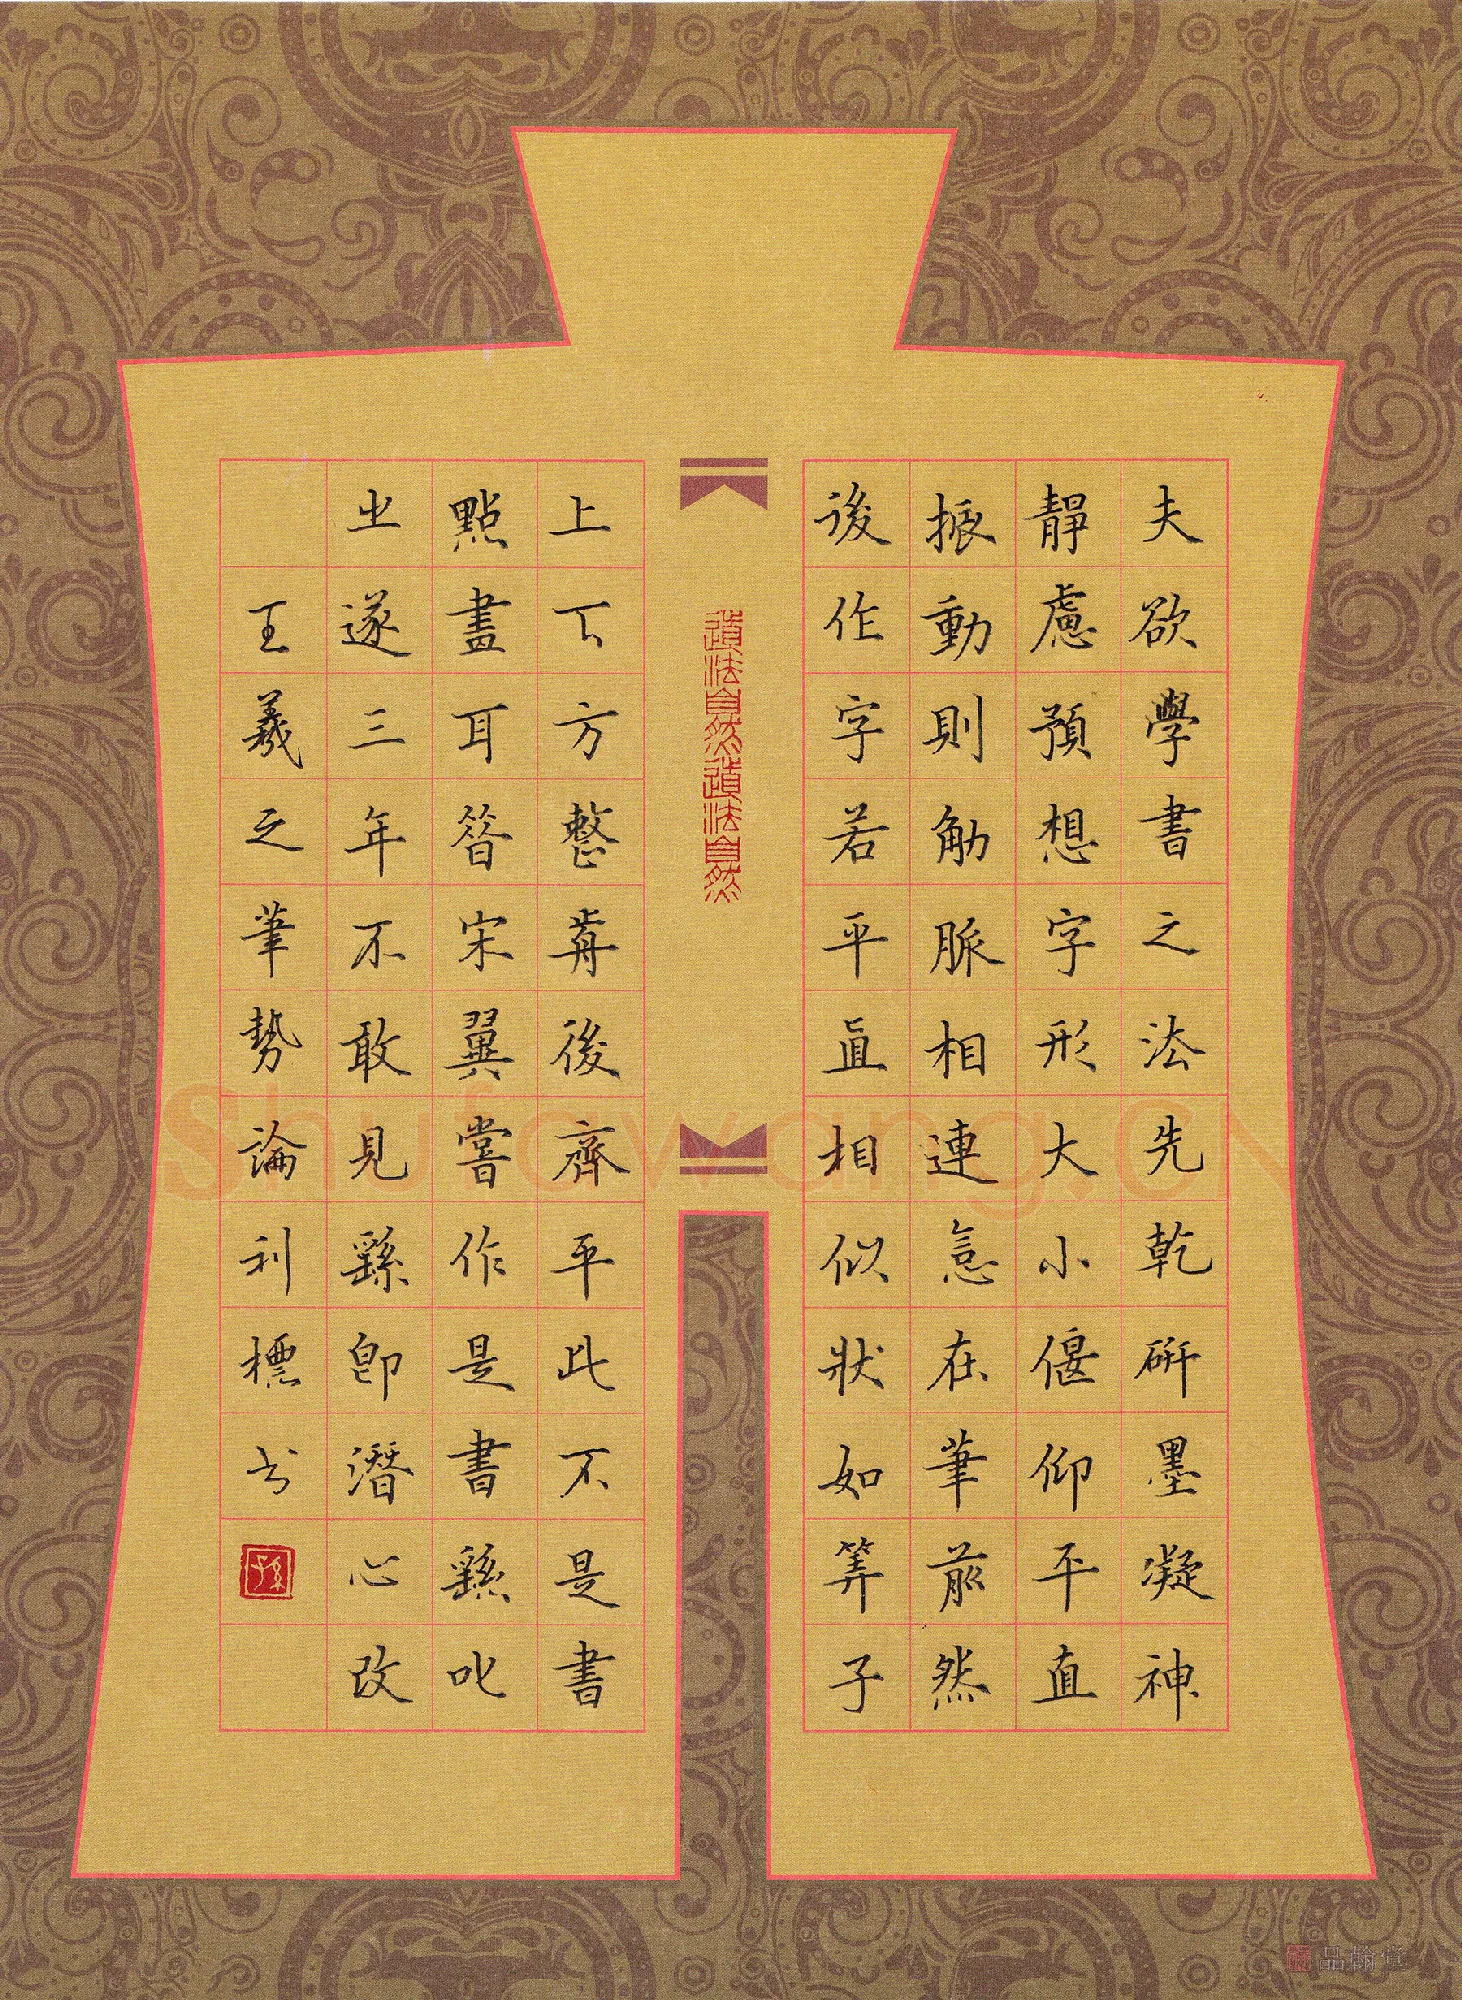 夫欲學書之法先乾研墨凝神
靜慮預想字形大小偃仰平直
振動則觔脈相連意在筆前然
後作字若平直相似狀如筭子
道法自然道法自然
上下方整前後齊平此不是書
點畫耳昔宋翼嘗作是書繇叱
之遂三年不敢見繇即潛心改
王羲之筆勢論利標书
Shufawang.CN
品翰堂